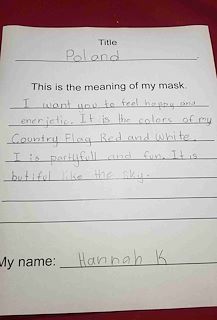 Title
Poland
This is the meaning of my mask.
I want you to feel happy and
enerjetic. It is the colors of my
Country Flag Red and White.
I is partyfull and fun. It is
butiful like the sky.
My name: Hannah K